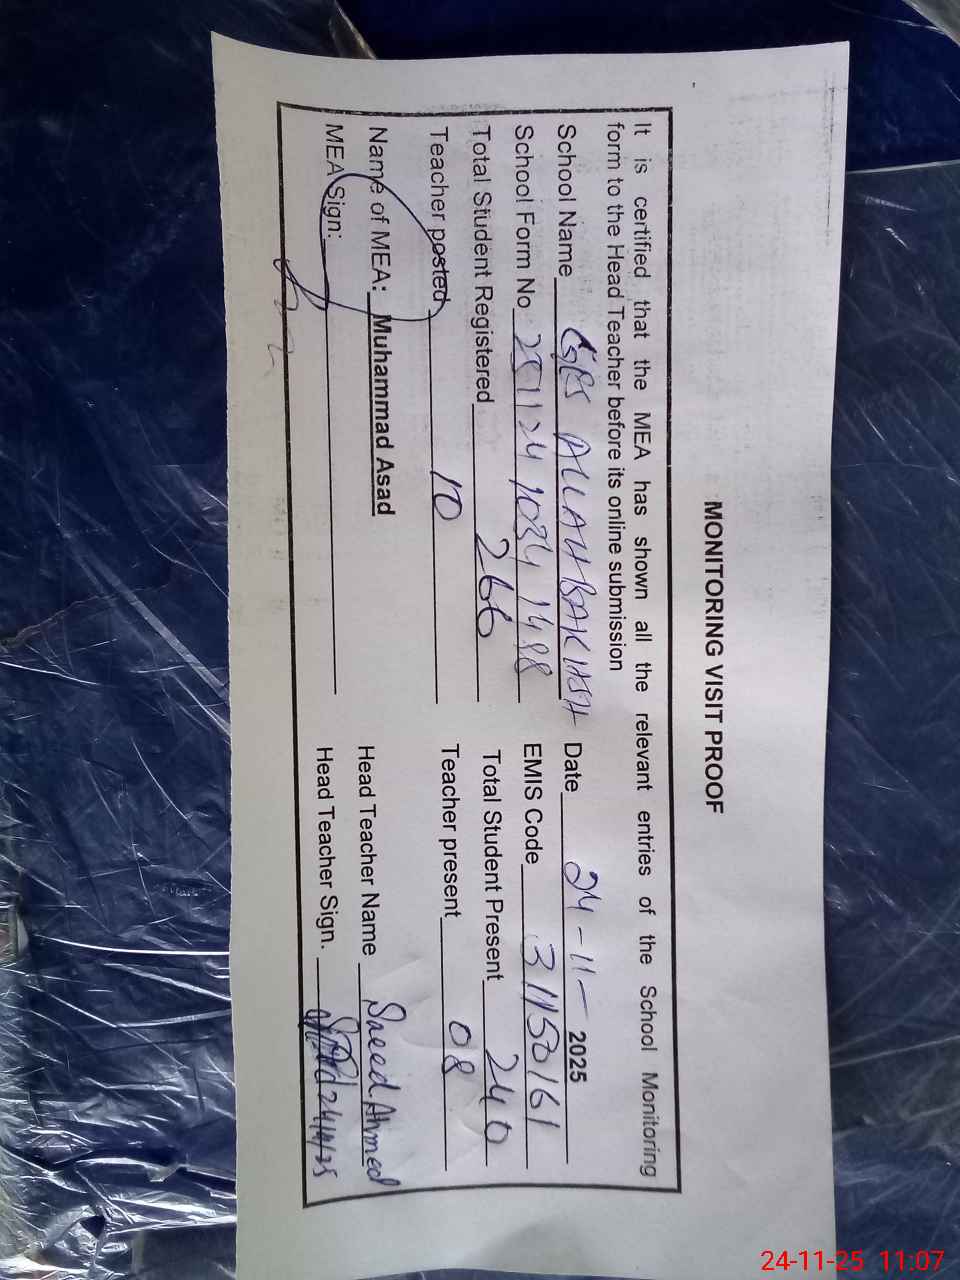 MONITORING VISIT PROOF
It is certified that the MEA has shown all the relevant entries of the School Monitoring
form to the Head Teacher before its online submission
School Name GPS ALLAH BAKHSH Date 24-11- 2025
School Form No EMIS Code 31150161
Total Student Registered 266 Total Student Present 240
Teacher posted 10 Teacher present 08
Name of MEA: Muhammad Asad Head Teacher Name Saeed Ahmed
MEA Sign: Head Teacher Sign. 24/11/25
24-11-25 11:07